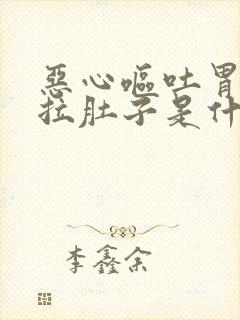 惡心嘔吐胃
拉肚子是什
李鑫余